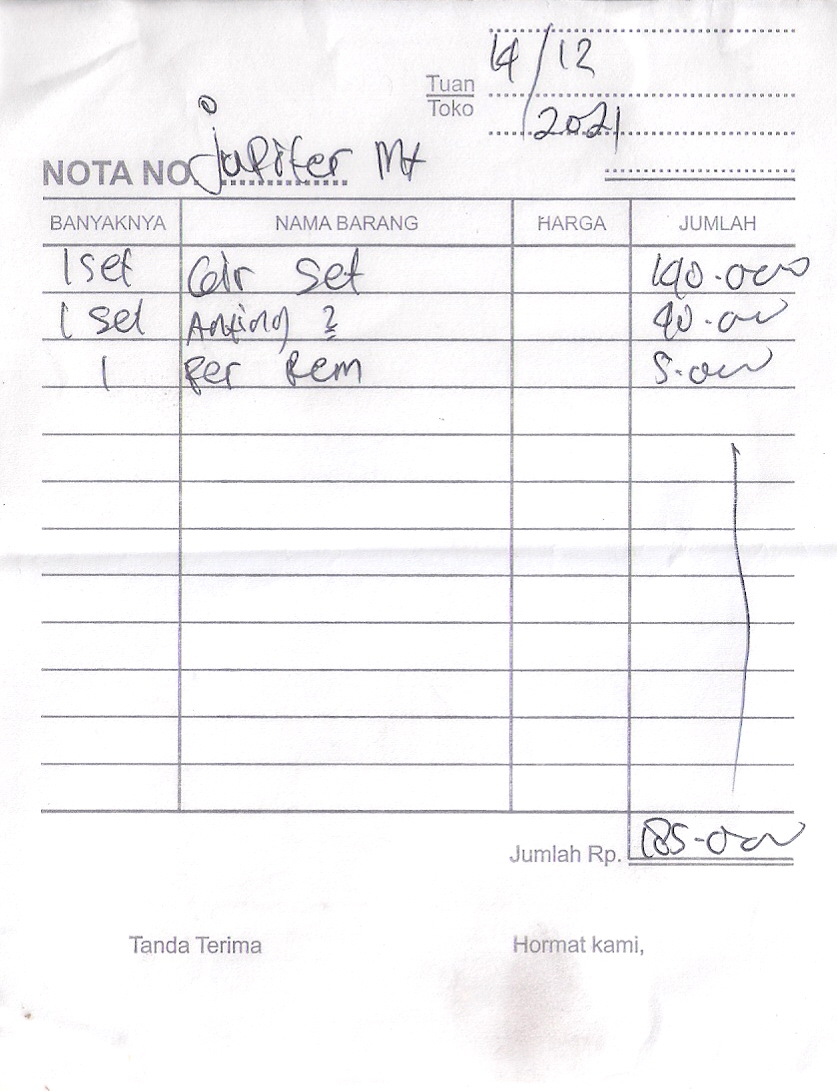 14/12
Tuan
Toko
2021
NOTA NO. jupiter Mx
BANYAKNYA NAMA BARANG HARGA JUMLAH
1 set Gir Set 140.000
1 set Anting 2 40.000
1 Per Rem 5.000
Jumlah Rp. 185.000
Tanda Terima Hormat kami,